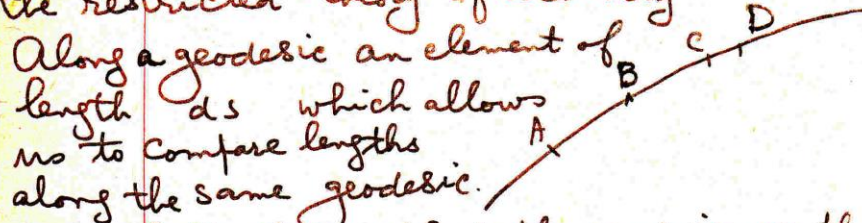 the restricted theory of
Along a geodesic an element of
length ds which allows
us to compare lengths
along the same geodesic.
A B C D